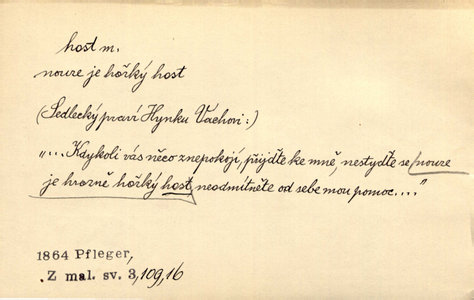 host m.
nouze je hořký host
(Sedlecký praví Hynku Vachovi:)
„... Kdykoli vás něco znepokojí, přijďte ke mně, nestyďte se/nouze
je hrozně hořký host, neodmítněte od sebe mou pomoc...."
1864 Pfleger,
.Z mal. sv. 3,109,16